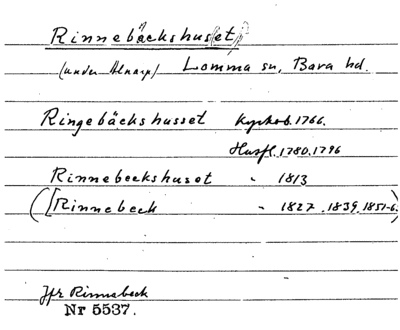 Rinnebäckshuset
(under Alnarp) Lomma sn, Bara hd.
Ringebäckshusset Kyrkob. 1766.
Husfl. 1780. 1796
Rinnebeckshuset " 1813
([Rinnebeck " 1827. 1839. 1851-6.)
Jfr Rinnebeck
Nr 5537.